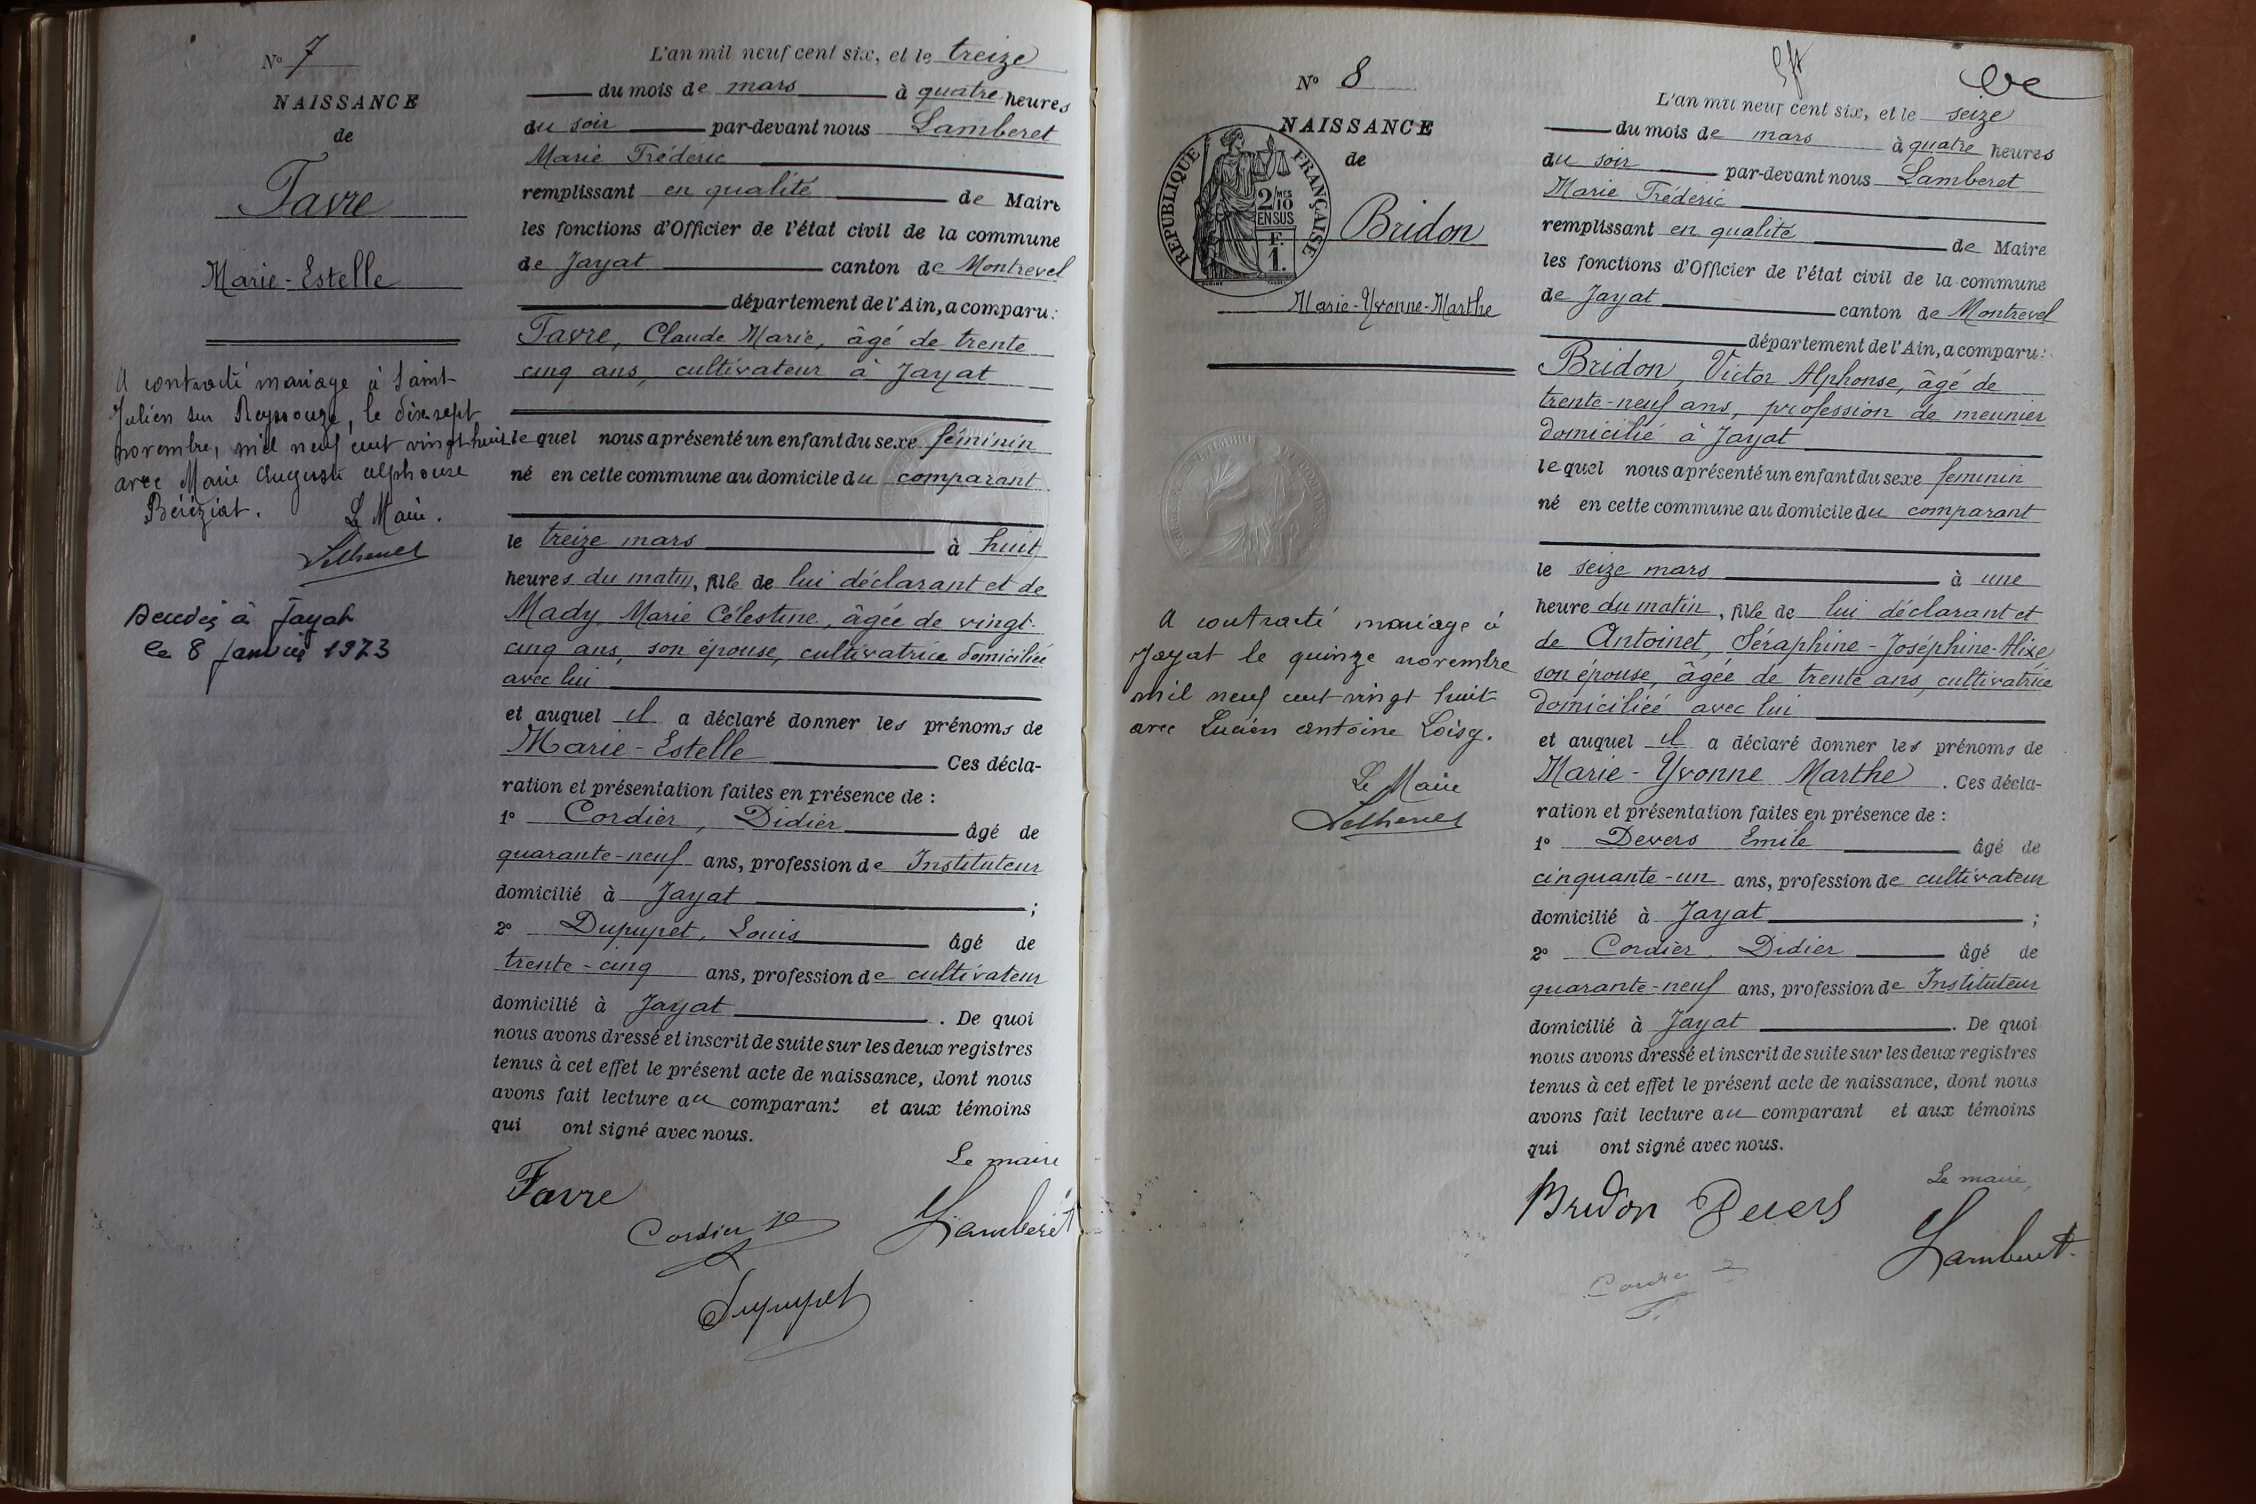 N° 7
NAISSANCE
de
Favre
Marie-Estelle
A contracté mariage à Saint
Julien sur Reyssouze, le dix-sept
novembre, mil neuf cent vingt huit
avec Marie Auguste Alphonse
Béréziat.
Le Maire.
Décédée à Jayat
le 8 Janvier 1973
L'an mil neuf cent six, et le treize
du mois de mars à quatre heures
du soir par-devant nous Lamberet
Marie Frédéric
remplissant en qualité de Maire
les fonctions d'Officier de l'état civil de la commune
de Jayat canton de Montrevel
département de l'Ain, a comparu :
Favre, Claude Marie, âgé de trente
cinq ans, cultivateur à Jayat
lequel nous a présenté un enfant du sexe féminin
né en cette commune au domicile du comparant
le treize mars à huit
heures du matin, fille de lui déclarant et de
Mady Marie Célestine, âgée de vingt-
cinq ans, son épouse, cultivatrice domiciliée
avec lui
et auquel il a déclaré donner les prénoms de
Marie-Estelle Ces décla-
ration et présentation faites en présence de :
1° Cordier, Didier âgé de
quarante-neuf ans, profession de Instituteur
domicilié à Jayat ;
2° Dupupet, Louis âgé de
trente-cinq ans, profession de cultivateur
domicilié à Jayat . De quoi
nous avons dressé et inscrit de suite sur les deux registres
tenus à cet effet le présent acte de naissance, dont nous
avons fait lecture au comparant et aux témoins
qui ont signé avec nous.
Le maire
Favre
Cordier D Lamberet
Dupupet
N° 8
NAISSANCE
de
REPUBLIQUE FRANÇAISE
2/MES
10
EN SUS
F.
1.
Bridon
Marie-Yvonne-Marthe
A contracté mariage à
Jayat le quinze novembre
mil neuf cent vingt huit
avec Lucien Antoine Loisy.
Le Maire
L'an mil neuf cent six, et le seize
du mois de mars à quatre heures
du soir par-devant nous Lamberet
Marie Frédéric
remplissant en qualité de Maire
les fonctions d'Officier de l'état civil de la commune
de Jayat canton de Montrevel
département de l'Ain, a comparu :
Bridon, Victor Alphonse, âgé de
trente-neuf ans, profession de meunier
domicilié à Jayat
lequel nous a présenté un enfant du sexe féminin
né en cette commune au domicile du comparant
le seize mars à une
heure du matin, fille de lui déclarant et
de Antoinet, Séraphine-Joséphine-Alixe
son épouse, âgée de trente ans, cultivatrice
domiciliée avec lui
et auquel il a déclaré donner les prénoms de
Marie-Yvonne Marthe . Ces décla-
ration et présentation faites en présence de :
1° Devers Emile âgé de
cinquante-un ans, profession de cultivateur
domicilié à Jayat ;
2° Cordier, Didier âgé de
quarante-neuf ans, profession de Instituteur
domicilié à Jayat . De quoi
nous avons dressé et inscrit de suite sur les deux registres
tenus à cet effet le présent acte de naissance, dont nous
avons fait lecture au comparant et aux témoins
qui ont signé avec nous.
Le maire,
Bridon Devers
Lamberet
Cordier